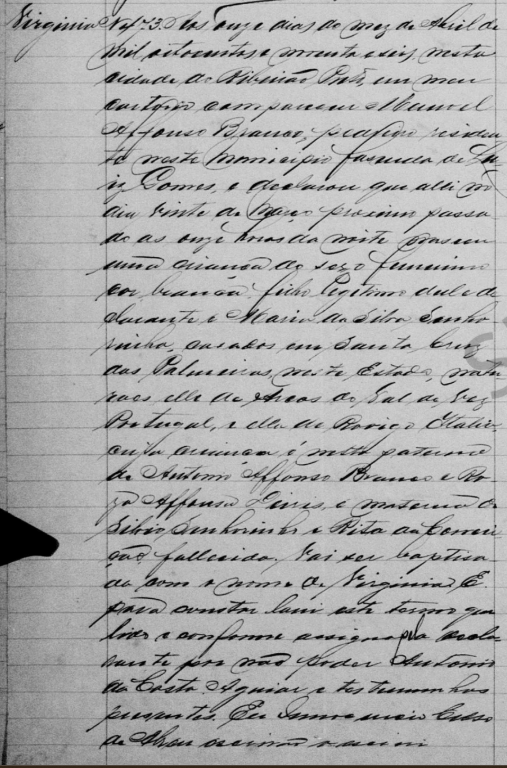 Virginia Nº 73. Aos onze dias do mez de Abril de
mil oitocentos e noventa e seis, nesta
cidade de Ribeirão Preto, em meu
cartorio compareceu Manoel
Affonso Branco, residen
te neste municipio fazenda de Lu
iz Gomes, e declarou que alli no
dia vinte de Março proximo passa
do as onze horas da noite nasceu
uma criança do sexo feminino
cor branca filha legitima delle de
clarante e Maria da Silva Senho
rinha, casados em Santa Cruz
das Palmeiras, neste Estado, natu
raes elle de Arcos do Val de Vez
Portugal, e ella de Rovigo Italia,
cuja criança é neta paterna
de Antonio Affonso Branco e Ro
za Affonsa e materna de
Silvio Senhorinho e Rita da Concei
ção, fallecida. Vai ser baptisa
da com o nome de Virginia. E
para constar lavrei este termo que
lido e conforme assigna pelo decla
rante por não poder Antonio
da Costa Aguiar e testemunhas
presentes. Eu
de Abreu escrivão o escrevi